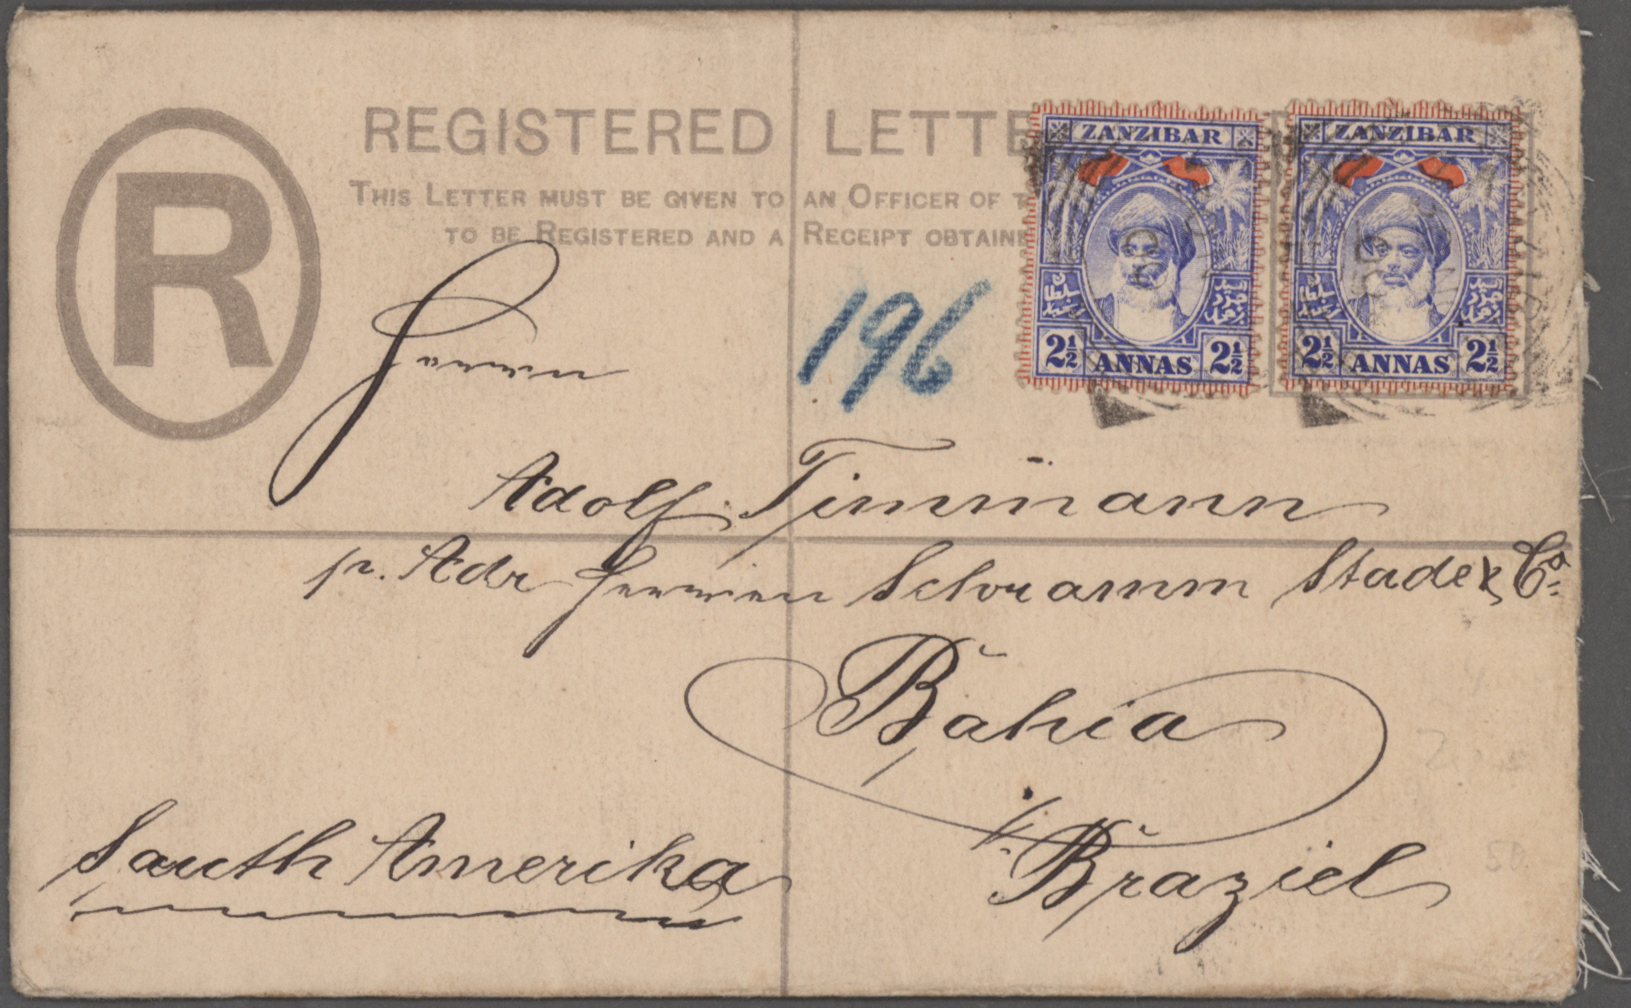 REGISTERED LETTE
THIS LETTER MUST BE GIVEN TO AN OFFICER OF T
TO BE REGISTERED AND A RECEIPT OBTAINE
R
ZANZIBAR
2½ ANNAS 2½
ZANZIBAR
2½ ANNAS 2½
196
Herrn
Adolf Timmann
p. Adr Herren Schramm Stade & Co.
Bahia
Braziel
South Amerika
50